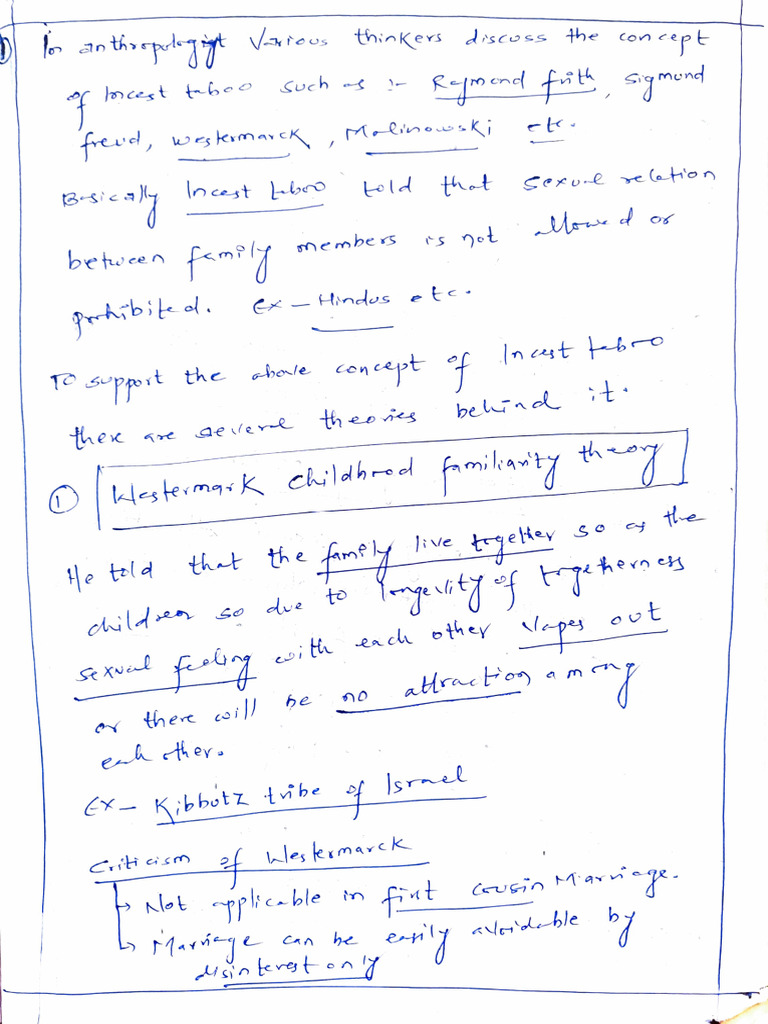 ① In anthropologist Various thinkers discuss the concept
of Incest taboo such as :- Raymond firth, sigmund
freud, westermarck, Malinowski etc.
Basically Incest taboo told that sexual relation
between family members is not allowed or
prohibited. Ex - Hindus etc.
To support the above concept of Incest taboo
there are several theories behind it.
① Westermark childhood familiarity theory
He told that the family live together so as the
children so due to longevity of togetherness
sexual feeling with each other vapes out
or there will be no attraction among
each other.
Ex - Kibbutz tribe of Israel
Criticism of Westermarck
↳ Not applicable in first cousin Marriage.
↳ Marriage can be easily avoidable by
disinterest only